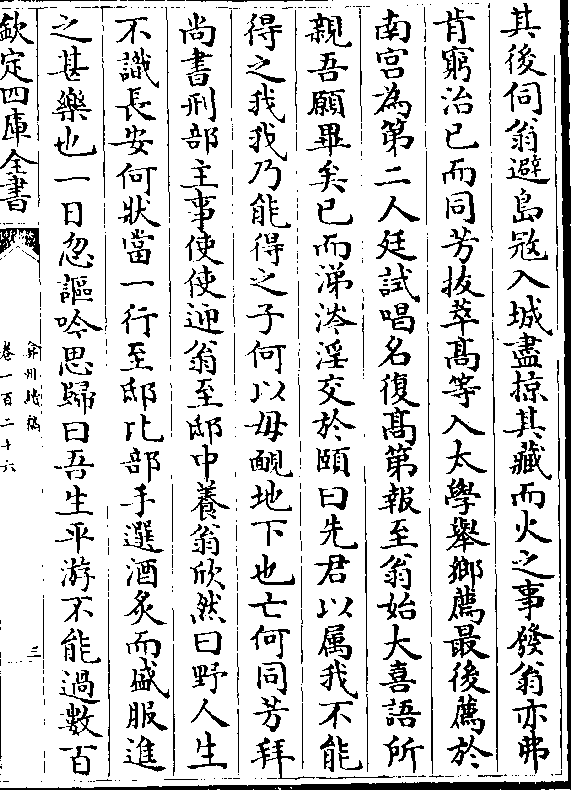 其後伺翁避島冦入城盡掠其藏而火之事發翁亦弗
肯窮治已而同芳拔萃髙等入太學舉鄉薦最後薦於
南宫為第二人廷試唱名復髙第報至翁始大喜語所
親吾願畢矣已而涕泠淫交於頤曰先君以属我不能
得之我我乃能得之子何以毋靦地下也亡何同芳拜
尚書刑部主事使使迎翁至邸中養翁欣然曰野人生
不識長安何狀當一行至邸比部手選酒炙而盛服進
之甚樂也一日忽謳吟思歸曰吾生平游不能過數百
欽定四庫全書
弇州續稿
卷一百二十六
三